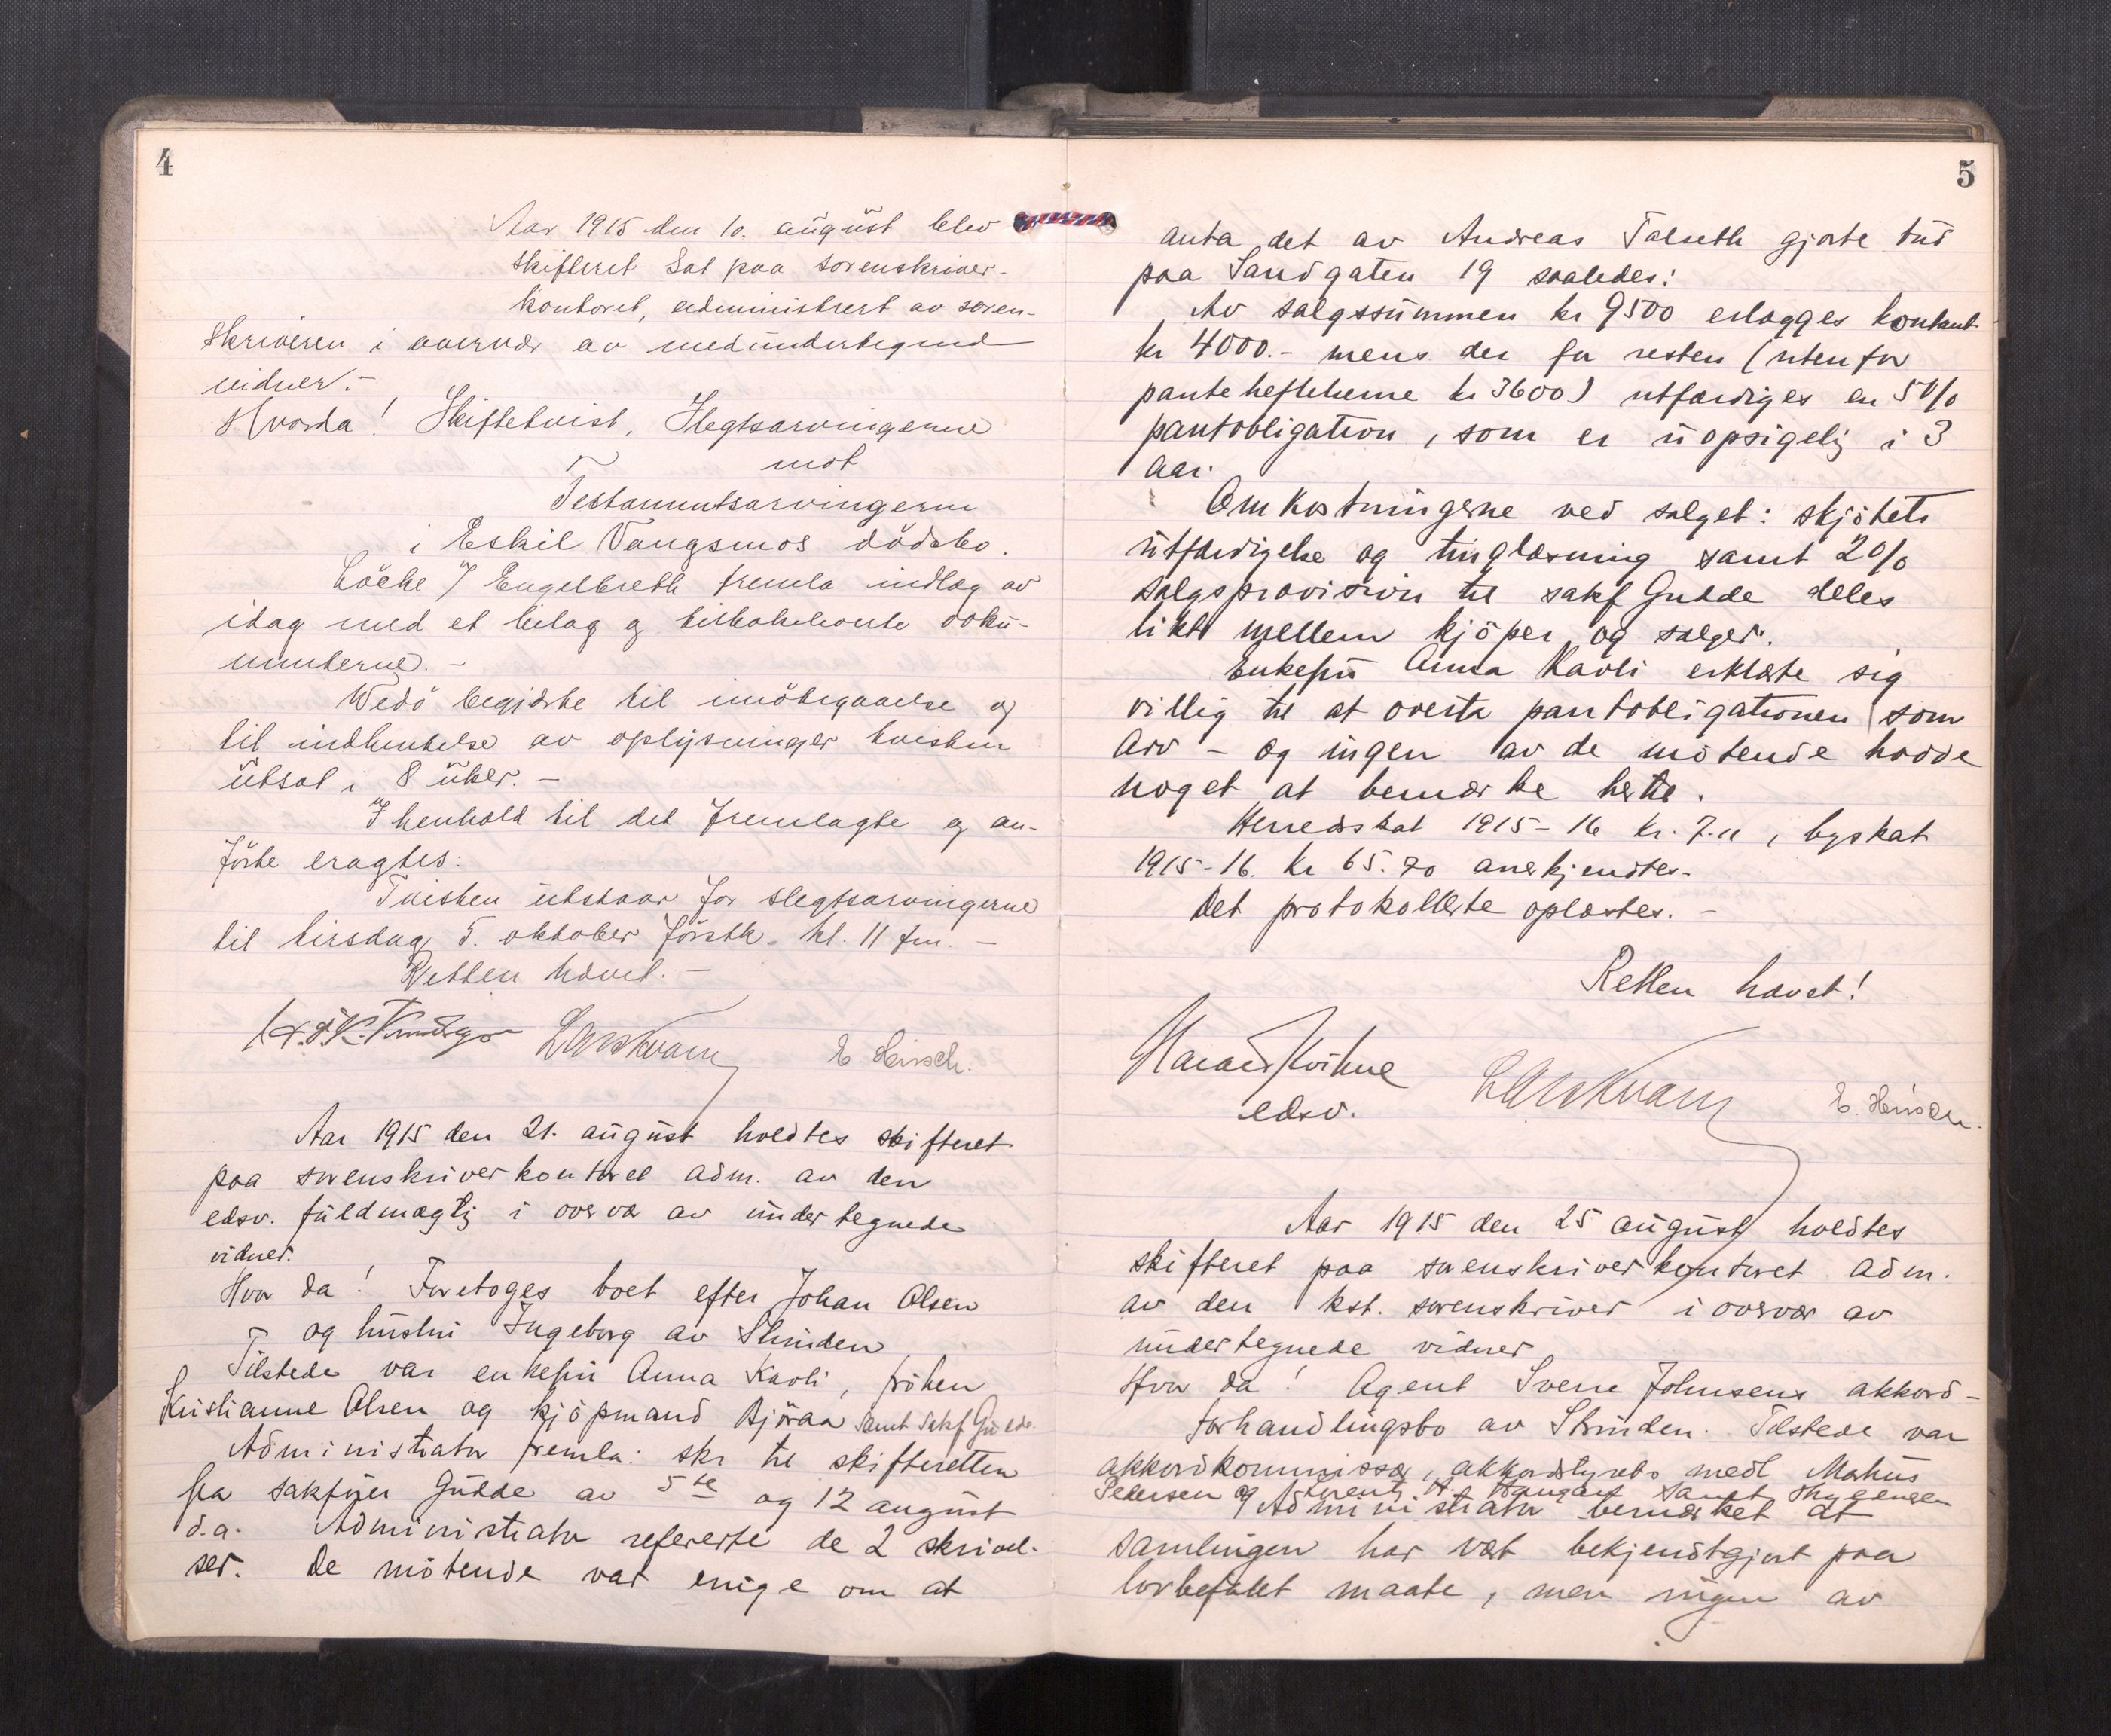 4
Aar 1915 den 10. august blev
skifteret sat paa sorenskriver-
kontoret, administrert av soren-
skriveren i overvær av medundertegnede
vidner.-
Hvorda! Skiftetvist, Slegtsarvingerne
mot
Testamentsarvingerne
i Eskil Vangsmos dödsbo.
Löcke f Engelbreth fremla indlæg av
idag med et bilag og tilbakeleverte doku-
menterne.-
Wedö begjærte til imötegaaelse og
til indhentelse av oplysninger tvisten
utsat i 8 uker.-
I henhold til det fremlagte og an-
förte eragtes:
Tvisten utstaar for slegtsarvingerne
til tirsdag 5. oktober förstk. kl. 11 fm.-
Retten hævet.-
Lars Kvam E. Hirsch.
Aar 1915 den 21. august holdtes skifteret
paa sorenskriverkontoret adm. av den
edsv. fuldmægtig i overvær av undertegnede
vidner.
Hvor da! Foretoges boet efter Johan Olsen
og hustru Ingeborg av Strinden
Tilstede var enkefru Anna Kavli, fröken
Kristianne Olsen og kjöpmand Björaa samt sakf Gulde.
Administrator fremla: skr til skifteretten
fra sakfører Gudde av 5te og 12 august
d.a. Administrator refererte de 2 skrivel-
ser. De mötende var enige om at
5
anta det av Andreas Talseth gjorte bud
paa Sandgaten 19 saaledes:
Av salgssummen kr 9500 erlægges kontant
kr 4000.- mens der for resten (utenfor
pantehefteherne kr 3600) utfærdiges en 5%
pantobligation, som er uopsigelig i 3
aar.
Omkostningerne ved salget: skjötets
utfærdigelse og tinglæsning samt 2%
salgsprovision til sakf Gudde deles
likt mellem kjöper og sælger.
Enkefru Anna Kavli erklærte sig
villig til at overta pantobligationen som
arv - og ingen av de mötende hadde
noget at bemærke hertil.
Herredskat 1915-16 kr. 7.11, byskat
1915-16. kr 65.70 anerkjendtes.
Det protokollerte oplæstes.-
Retten hævet!
Harald Kvihne Lars Kvam E. Hirsch.
edsv.
Aar 1915 den 25 august holdtes
skifteret paa sorenskriverkontoret adm.
av den kst. sorenskriver i overvær av
undertegnede vidner
Hvor da! Agent Sverre Johnsens akkord-
forhandlingsbo av Strinden. Tilstede var
akkordkommissær, akkordstyrets medl
Pedersen og Lorentz samt
Administrator bemærket at
samlingen har vært bekjendtgjort paa
lovbefalet maate, men ingen av